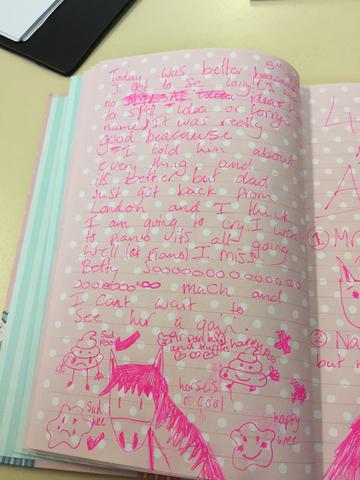 Today was better beacause
I got to see Lorry (
no idear
to spil idea or Lorrys
name) It was really
good beacause
I told him about
every thing and
its Better but dad
Just got back from
London and I think
I am going to cry I went
to piano its all going
Well (at piano) I miss
Betty Soooooooooooooo
ooooooooo much and
I Cant wait to
See her a gain.
Sad
Poo
and
happy
Poo
horse's
r cool
Sad
wee
happy
wee
4
A
① M
② Na
but h